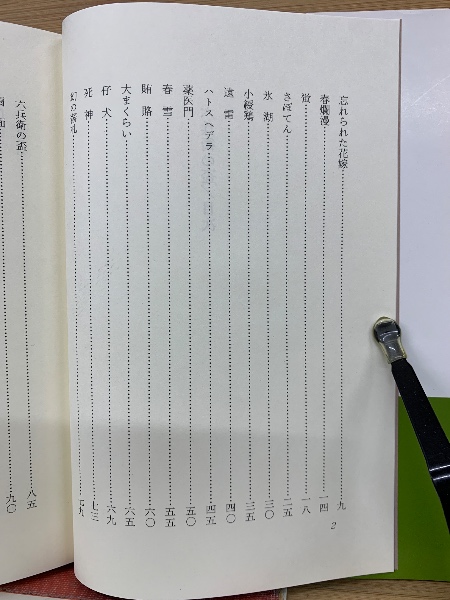 忘れられた花嫁……九
春爛漫……一四
蛍……一八
さぼてん……二五
氷湖……三〇
小綬鶏……三五
遠雷……四〇
ハトスヘデラ……四五
薬医門……五〇
春雪……五五
賄賂……六〇
大まくらい……六五
仔犬……六九
死神……七三
幻の落札……七九
2
六兵衛の盃……八五
……九〇